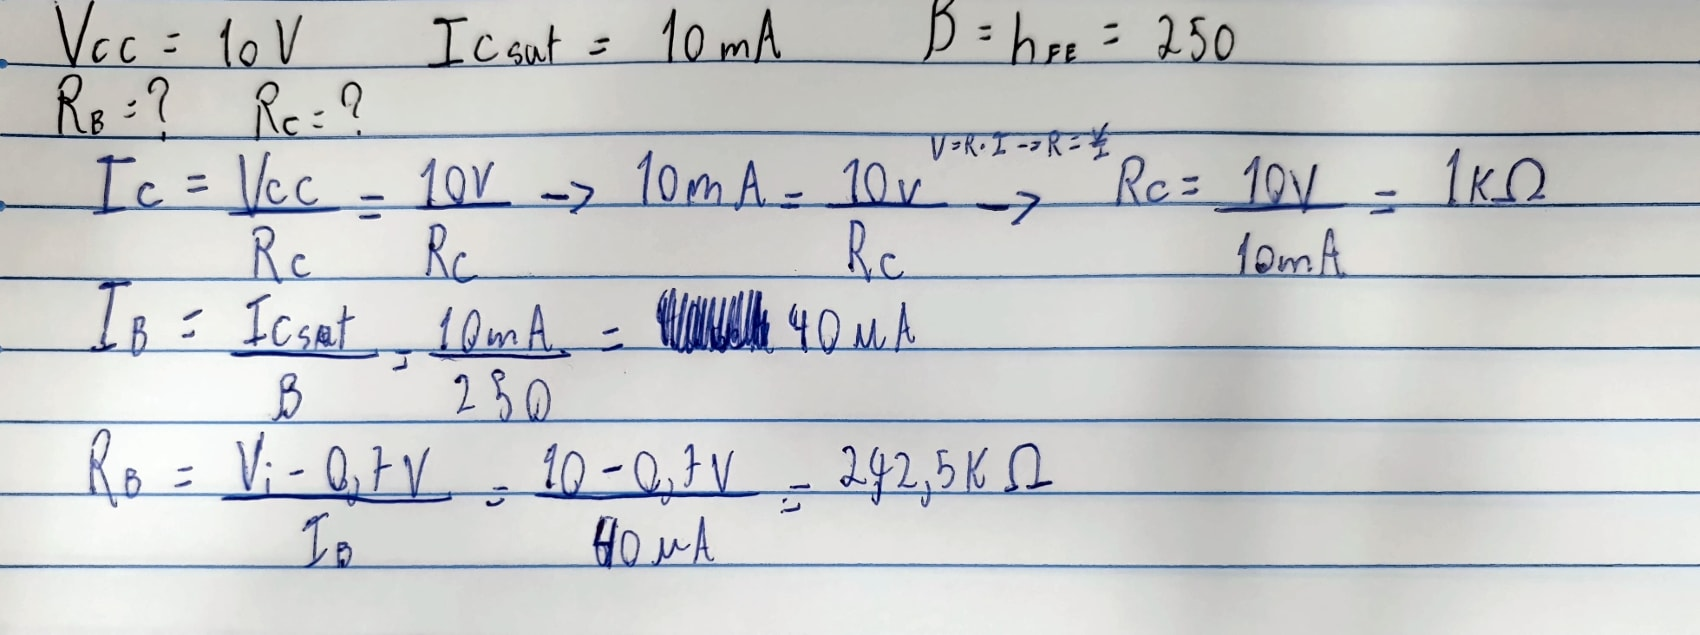 Vcc = 10V Icsat = 10mA β = hFE = 250
RB = ? RC = ?
V=R.I -> R = V/I
Ic = Vcc/Rc = 10V/Rc -> 10mA = 10V/Rc -> Rc = 10V/10mA = 1KΩ
IB = Icsat/β = 10mA/250 = 40μA
RB = Vi - 0,7V/IB = 10 - 0,7V/40μA = 242,5KΩ